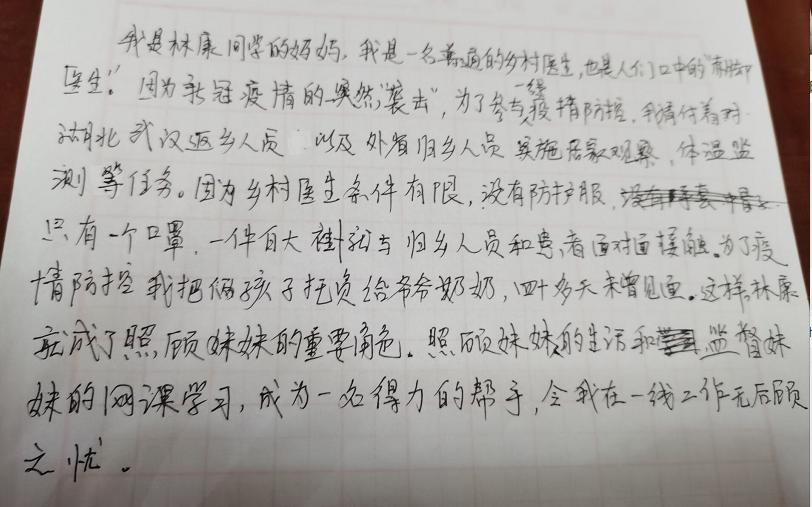 我是林康同学的妈妈，我是一名普通的乡村医生，也是人们口中的“赤脚
医生”。因为新冠疫情的突然“袭击”，为了参与一线疫情防控，我肩负着对
湖北武汉返乡人员 以及外省归乡人员实施居家观察，体温监
测等任务。因为乡村医生条件有限，没有防护服，
只有一个口罩，一件白大褂就与归乡人员和患者面对面接触。为了疫
情防控我把俩孩子托负给爷爷奶奶，四十多天未曾见面。这样林康
就成了照顾妹妹的重要角色。照顾妹妹的生活和监督妹
妹的网课学习，成为一名得力的帮手，令我在一线工作无后顾
之忧。